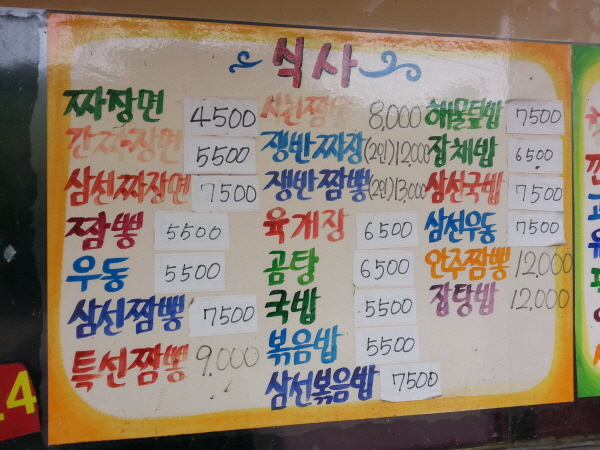 식사
짜장면 4500
간짜장면 5500
삼선짜장면 7500
짬뽕 5500
우동 5500
삼선짬뽕 7500
특선짬뽕 9,000
8,000
쟁반짜장(2인)12,000
쟁반짬뽕(2인)13,000
육개장 6500
곰탕 6500
국밥 5500
볶음밥 5500
삼선볶음밥 7500
해물덮밥 7500
잡채밥 6500
삼선국밥 7500
삼선우동 7500
안주짬뽕 12,000
잡탕밥 12,000
4